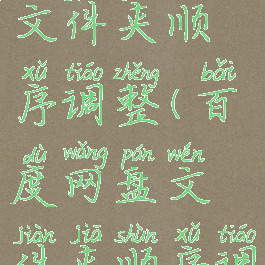 文件夹顺
xù tiáo zhěng bǎi
序调整(百
dù wǎng pán wén
度网盘文
jiàn jiā shùn xù tiáo
件夹顺序调